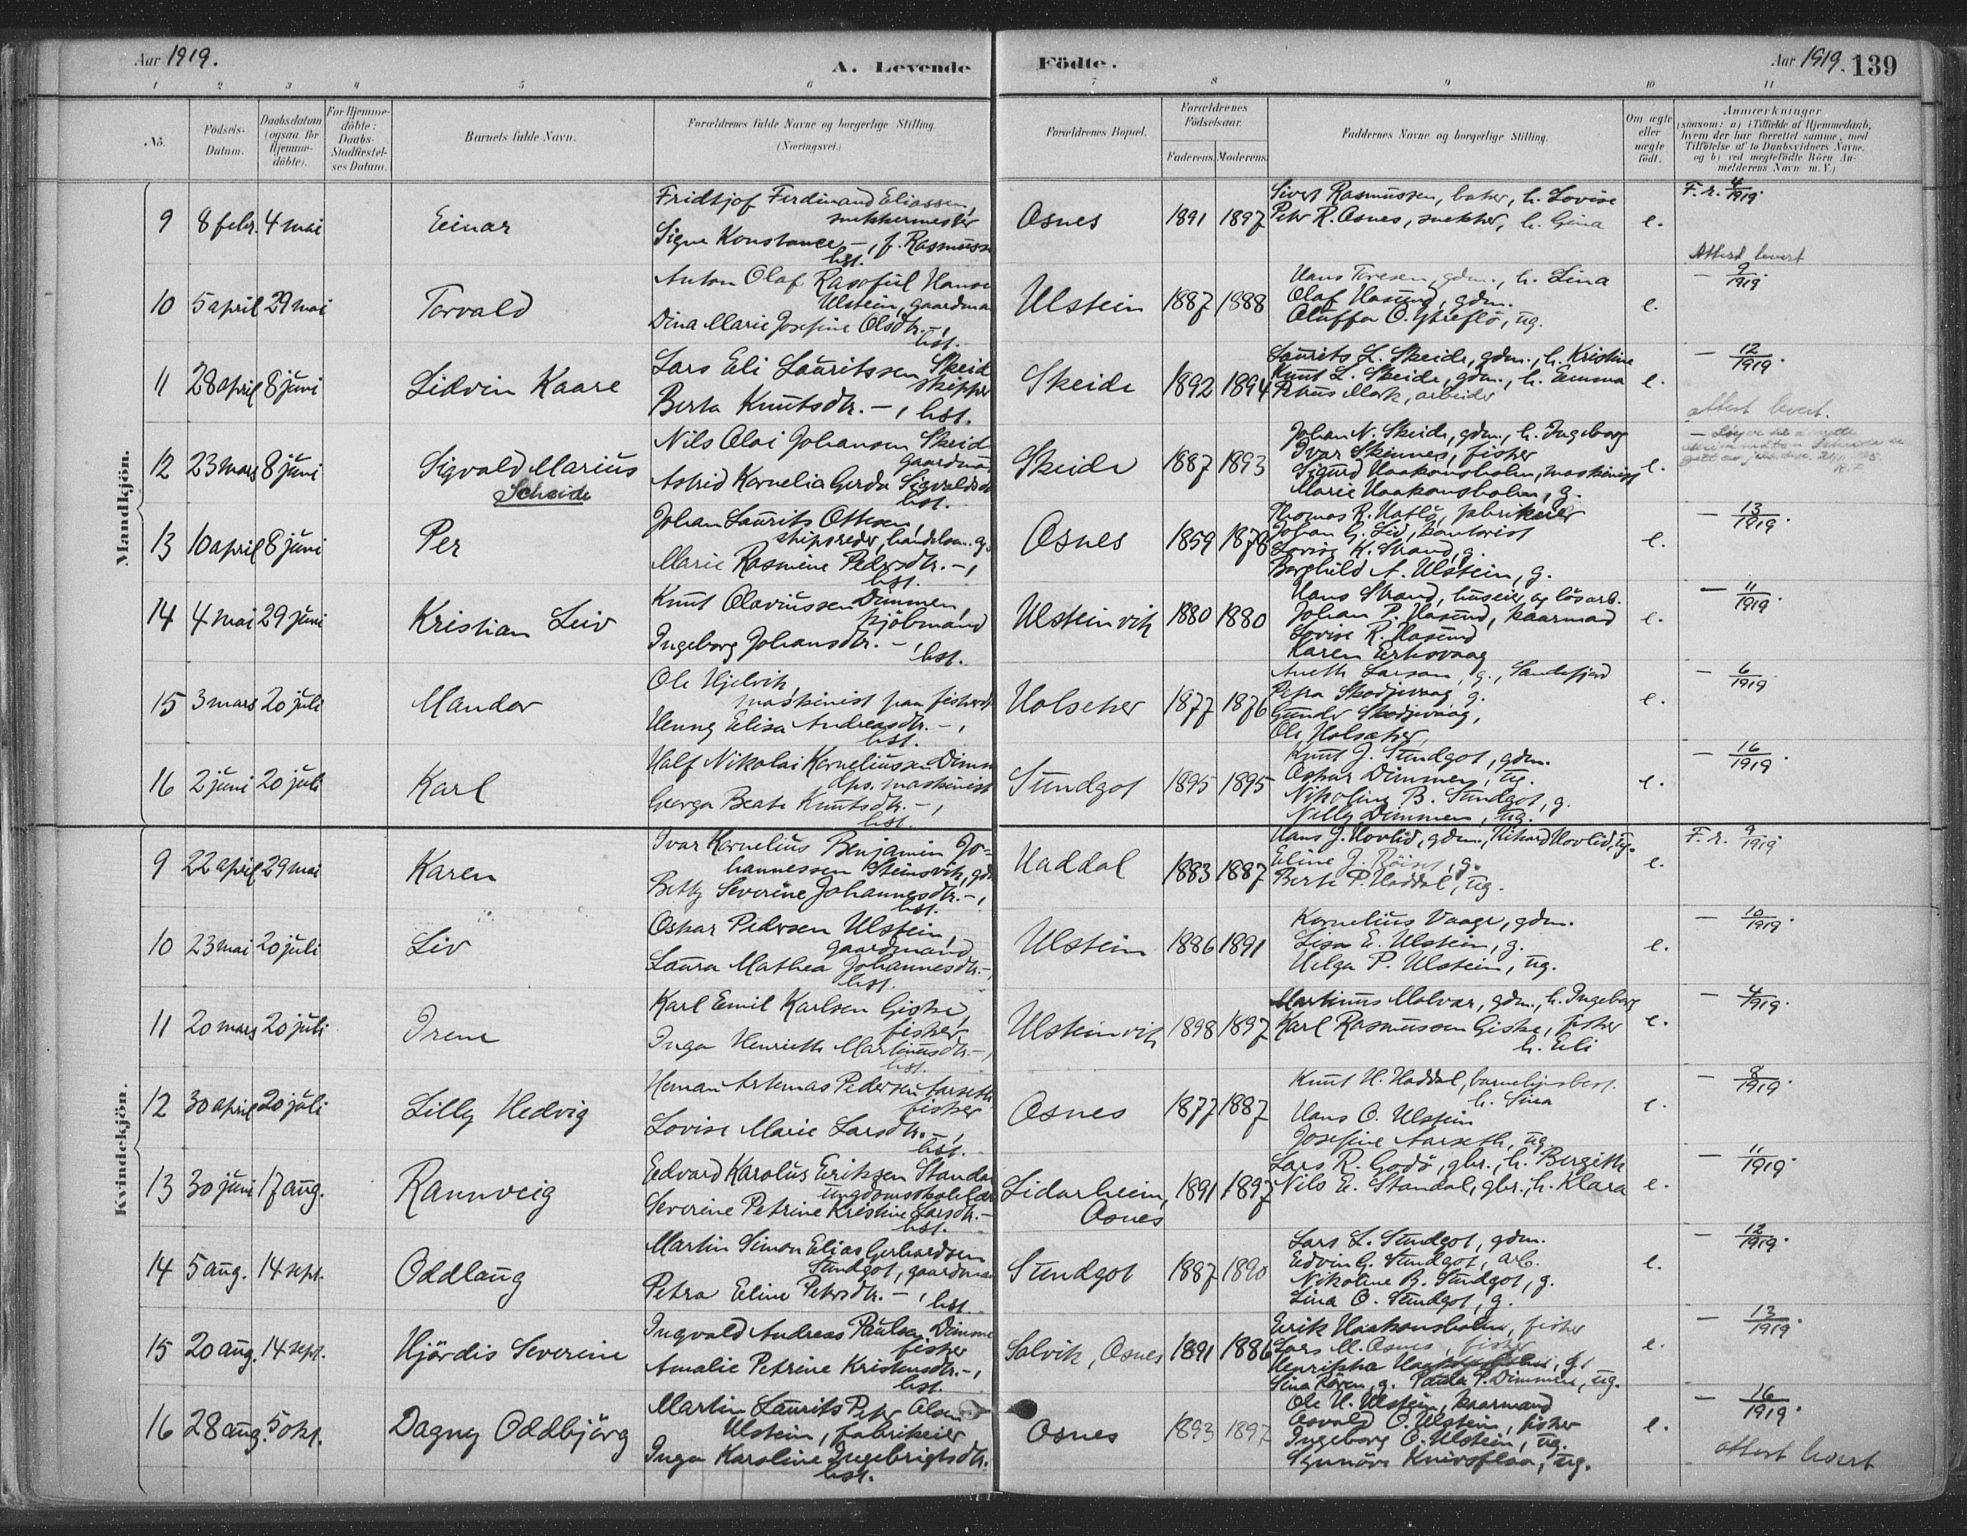 Aar 1919.
A. Levende
Födte.
Aar 1919. 139
1 2 3 4 5 6 7 8 9 10 11
No.
Födsels-Datum.
Daabsdatum (ogsaa for Hjemme-döbte).
For Hjemme-döbte: Daabs-Stadfæstel-ses Datum.
Barnets fulde Navn.
Forældrenes fulde Navne og borgerlige Stilling.
(Næringsvei.)
Forældrenes Bopæl.
Forældrenes Födselsaar.
Faderens. Moderens.
Faddernes Navne og borgerlige Stilling.
Om ægte eller uægte födt.
Anmærkninger
(saasom: a) i Tilfælde af Hjemmedaab,
hvem der har forrettet samme, med
Tilföielse af to Daabsvidners Navne,
og b) ved uægtefödte Börn An-
melderens Navn m. V.)
Mandkjön.
9 8 febr. 4 mai Einar
Fridtjof Ferdinand Eliassen,
snekkermester
Signe Konstance –, f. Rasmussen
hst.
Osnes 1891 1897
Sivert Rasmussen, baker, h. Lovise
Petr R. Osnes, snekker, h. Gina
e.
F. r. 4/1919.
Attest levert
10 5 april 29 mai Torvald
Anton Olaf Rasoful Hansen
Ulstein, gaardman
Dina Marie Josefine Olsdtr. –,
hst.
Ulstein 1887 1888
Hans Toresen, gdm., h. Lina
Olaf Hasund, gdm.
Oluffa O. Ytreflö, ug.
e.
– 9/1919.
11 28 april 8 juni Lidvin Kaare
Lars Eli Lauritssen Skeide
skipper
Berta Knutsdtr. –, hst.
Skeide 1892 1894
Laurits L. Skeide, gdm., h. Kristine
Knut L. Skeide, gdm., h. Emma
Petrus Mork, arbeider
e.
– 12/1919.
attest levert.
12 23 mars 8 juni Sigvald Marius
Scheide
Nils Olai Johansen Skeide
gaardman
Astrid Kornelia Gerda Sigvaldsdtr
hst.
Skeide 1887 1893
Johan N. Skeide, gdm., h. Ingeborg
Ivar Skinnes, fisker
Sigurd Haakonsholm, maskinist
Marie Haakonsholm, g.
e.
13 10 april 8 juni Per
Johan Laurits Ottesen,
skipsreder, handelsm. g.
Marie Rasmine Pedersdtr. –,
hst.
Osnes 1859 1878
Thomas R. Hatlö, fabrikeier
Johan G. Lid, kontorist
Lovise K. Strand, g.
Borghild A. Ulstein, g.
e.
– 13/1919.
14 4 mai 29 juni Kristian Leiv
Knut Olaviussen Dimmen,
kjöbmand
Ingeborg Johansdtr. –,
hst.
Ulsteinvik 1880 1880
Hans Strand, huseier og lösarb.
Johan P. Hasund, kaarmand
Lovise R. Hasund
Karen Eriksvaag
e.
– 11/1919.
15 3 mars 20 juli Mandor
Ole Hjelvik,
maskinist paa fiskerd
Henny Elisa Andreasdtr. –,
hst.
Holseker 1877 1876
Aneth Larsen, g., Sandefjord
Petra Skodjevaag g.
Gunder Skodjevaag,
Ole Holsæker,
e.
– 6/1919.
16 2 juni 20 juli Karl
Half Nikolai Korneliussen Dimm
dps. maskinist
Georga Beate Knutsdtr. –,
hst.
Sundgot 1895 1895
Knut J. Sundgot, gdm.
Oskar Dimmen, ug.
Nikoline B. Sundgot, g.
Nelly Dimmen, ug.
e.
– 16/1919.
Kvindekjön.
9 22 april 29 mai Karen
Ivar Kornelius Benjamin Jo-
hannessen Steinsvik, gdm
Betty Severine Johannesdtr. –,
hst.
Haddal 1883 1887
Hans J. Hovlid, gdm., Rikard Hovlid, ug.
Eline J. Röiset, g.
Berte P. Haddal, ug.
e.
F. r. 9/1919
10 23 mai 20 juli Liv
Oskar Pedersen Ulstein,
gaardmand
Laura Mathea Johannesdtr. –,
hst.
Ulstein 1886 1891
Kornelius Vaage, gdm.
Lisa E. Ulstein, g.
Helga P. Ulstein, ug.
e.
– 10/1919.
11 20 mars 20 juli Irene
Karl Emil Karlsen Giske,
fisker
Inga Henriette Martinusdtr. –,
hst.
Ulsteinvik 1898 1897
Martinus Molvær, gdm., h. Ingeborg
Karl Rasmussen Giske, fisker
h. Eli
e.
– 4/1919.
12 30 april 20 juli Lilly Hedvig
Heman Artemas Pedersen Aarseth
fisker
Lovise Marie Larsdtr. –,
hst.
Osnes 1877 1887
Knut H. Haddal,
h. Sina
Hans O. Ulstein
Josefine Aarseth, ug.
e.
– 8/1919.
13 30 juni 17 aug. Rannveig
Edvard Karolus Eriksen Standal
ungdomsskolelær
Severine Petrine Kristine Larsdtr. –
hst.
Lidarheim, Osnes 1891 1897
Lars R. Godö, gbr., h. Bergithe
Nils E. Standal, gbr., h. Klara
e.
– 11/1919.
14 5 aug. 14 sept. Oddlaug
Martin Simon Elias Gerhardsen
Sundgot, gaardman
Petra Eline Petersdtr. –,
hst.
Sundgot 1887 1890
Lars L. Sundgot, gdm.
Edvin G. Sundgot, arb.
Nikoline B. Sundgot, g.
Lina O. Sundgot, g.
e.
– 12/1919.
15 20 aug. 14 sept. Hjördis Severine
Ingvald Andreas Paulsen Dimme
fisker
Amalie Petrine Kristensdtr. –,
hst.
Solvik, Osnes 1891 1886
Erik Haakonsholm, fisker
Lars M. Osnes, fisker
Henrikka Haakonsholm, g.
Sina Rören, g. Paula P. Dimmen, ug.
e.
– 13/1919.
16 28 aug. 5 okt. Dagny Oddbjörg
Martin Laurits Peter Olsen
Ulstein, fabrikeier
Inga Karoline Ingebrigtsdtr.
hst.
Osnes 1893 1897
Ole H. Ulstein, kaarmand
Osvald O. Ulstein, fisker
Ingeborg O. Ulstein, ug.
Synnöve Knivsflaa, ug.
e.
– 16/1919.
attest levert